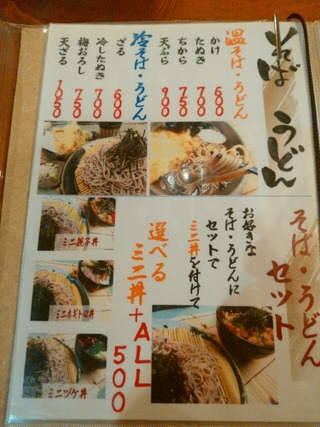 そば うどん
温そば・うどん
かけ 600
たぬき 700
ちから 750
天ぷら 900
冷そば・うどん
ざる 600
冷したぬき 700
梅おろし 750
天ざる 1050
そば・うどん
セット
お好きな
そば・うどんに
セットで
ミニ丼を付けて
選べる
ミニ丼+ALL
500
ミニ親子丼
ミニネギトロ丼
ミニヅケ丼